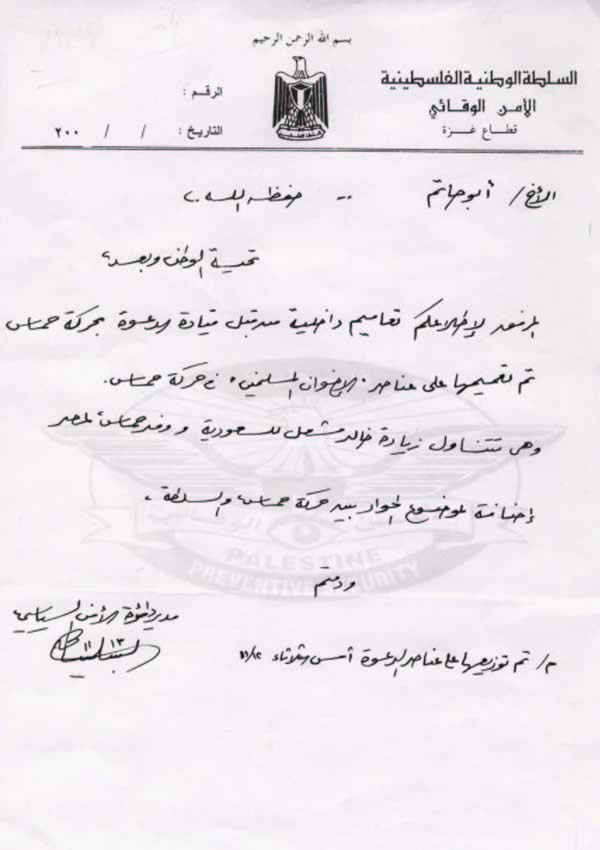 بسم الله الرحمن الرحيم
السلطة الوطنية الفلسطينية
الأمن الوقائي
قطاع غزة
الرقم :
التاريخ : / / ٢٠٠
الأخ / أبو حاتم .. حفظه الله ..
تحية الوطن وبعد،
المرفق لإطلاعكم تعاميم داخلية من قبل قيادة الدعوة بحركة حماس
تم تعميمها على عناصر "الإخوان المسلمين" في حركة حماس.
وهي تتناول زيارة خالد مشعل للسعودية ووفد حماس لمصر
إضافة لموضوع الحوار بين حركة حماس والسلطة،
ودمتم
مدير دائرة الأمن السياسي
١١/٣
م/ تم توزيعها على عناصر الدعوة أمس الثلاثاء ١١/٢
PALESTINE
PREVENTIVE SECURITY